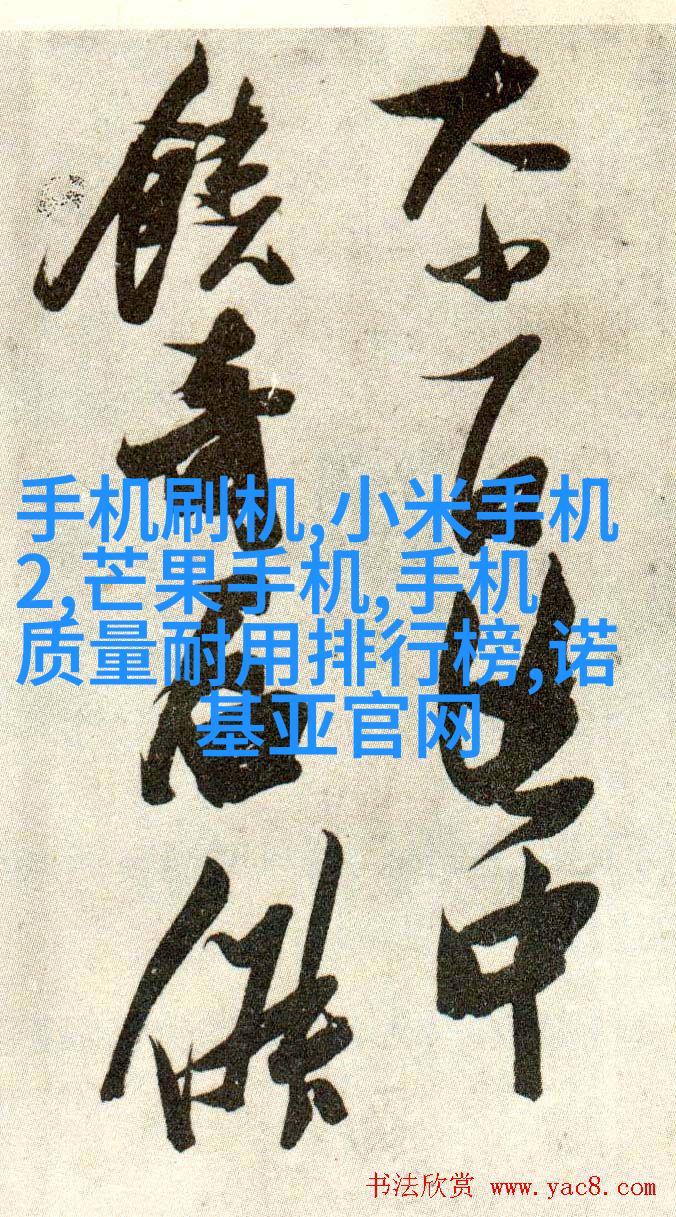 大小百世中
饶奇石俶
手机刷机,小米手机
2,芒果手机,手机
质量耐用排行榜,诺
基亚官网
书法欣赏 www.yac8.com